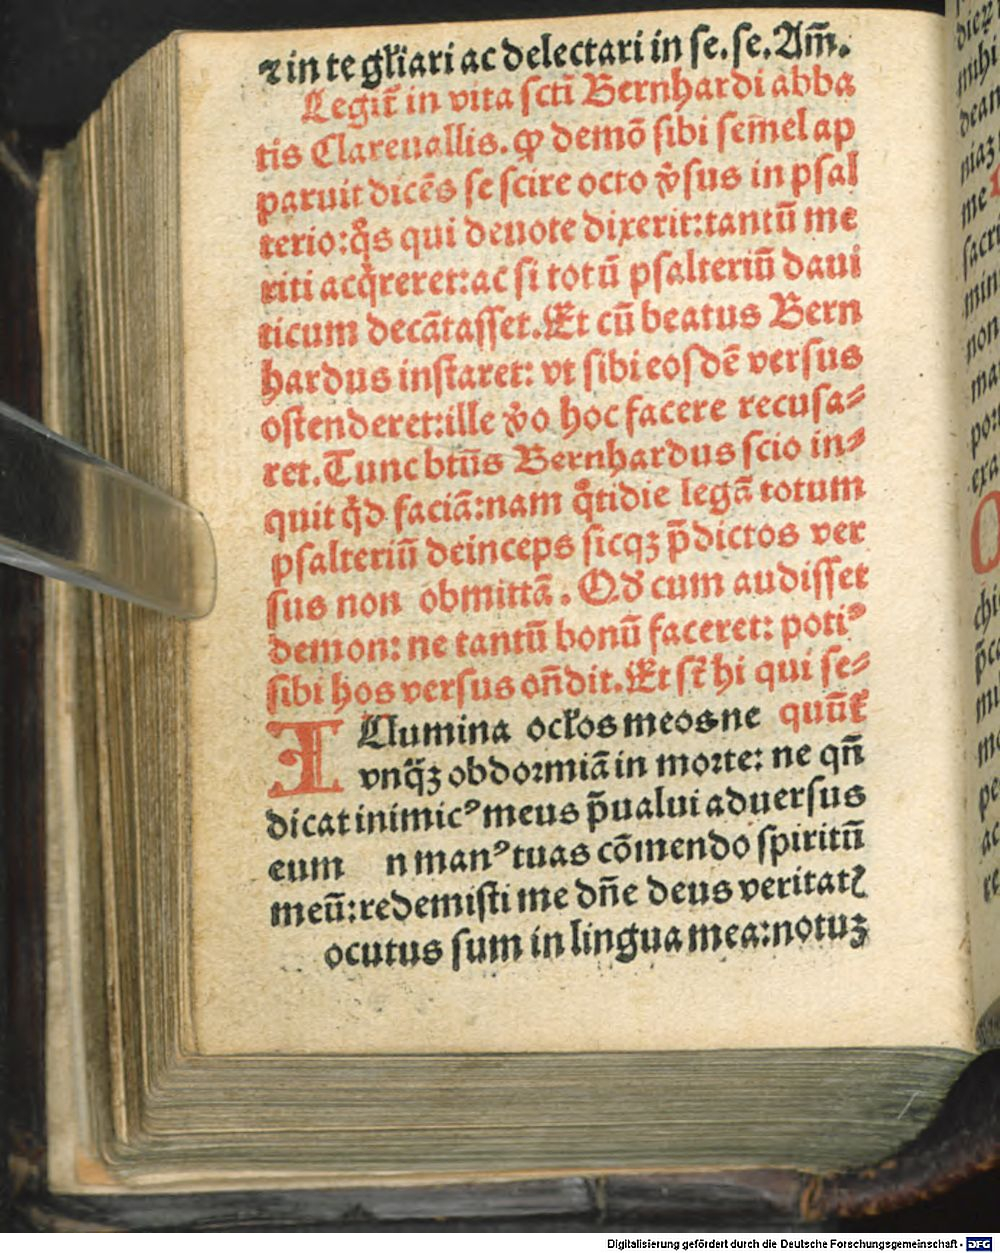 ⁊ in te gl̄iari ac delectari in se. se. Am̄.
Legit̄ in vita scti Bernhardi abba
tis Clareuallis. ꝙ demō sibi sem̄el ap
paruit dicēs se scire octo v̊sus in psal
terio: q̊s qui deuote dixerit: tantū me
riti acq̊reret: ac si totū psalteriū daui
ticum decātasset. Et cū beatus Bern
hardus instaret: vt sibi eosdē versus
ostenderet: ille v̊o hoc facere recusa⸗
ret. Tunc btūs Bernhardus scio in⸗
quit qd̓ faciā: nam q̊tidie legā totum
psalteriū deinceps sicqꝫ p̄dictos ver
sus non obmittā. Qd̓ cum audisset
demon: ne tantū bonū faceret: potiꝰ
sibi hos versus on̄dit. Et st̄ hi qui se⸗
quūt̄
ILlumina oc̄los meos ne
vnq̈ꝫ obdormiā in morte: ne qn̄
dicat inimicꝰ meus p̄ualui aduersus
eum n manꝰ tuas cōmendo spiritū
meū: redemisti me dn̄e deus veritatꝭ
ocutus sum in lingua mea: notuꝫ
diex
nuhi
dean
niaꝫ
me
sacri
min
non
ma
po:
exa
O
chr
p̄c
mu
me
pe
ac
re
Digitalisierung gefördert durch die Deutsche Forschungsgemeinschaft - DFG